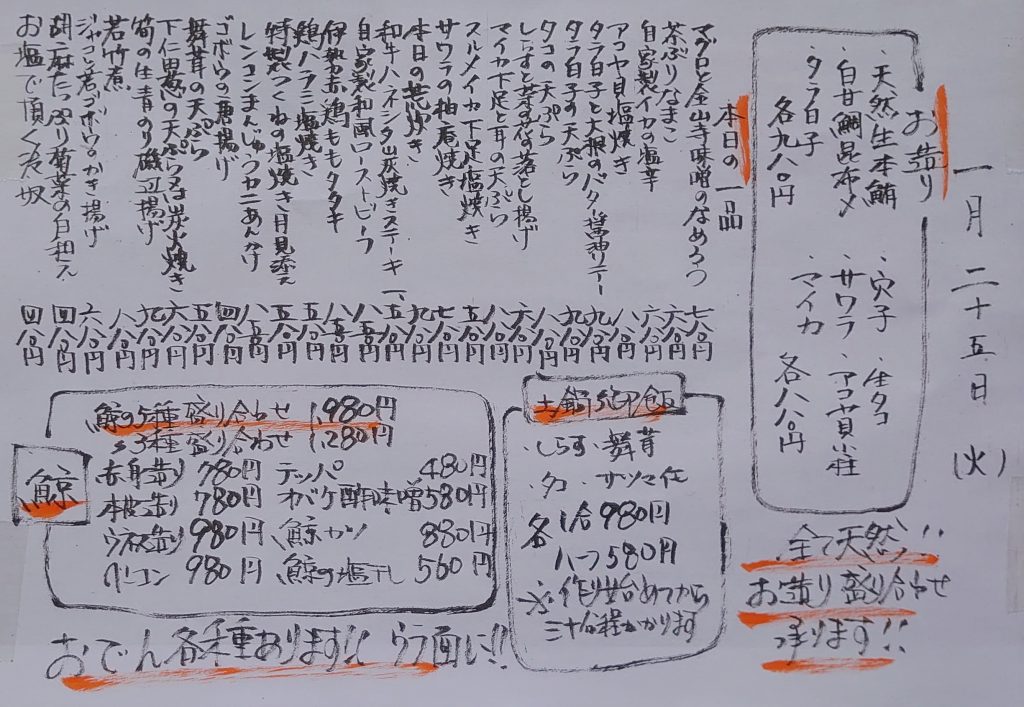 一月二十五日(火)
お造り
・天然生本鮪
・白甘鯛昆布〆
・タラ白子
各九八〇円
・穴子・生タコ
・サワラ・アコヤ貝小柱
・マイカ
各八八〇円
全て天然!!
お造り盛り合わせ
承ります!!
本日の一品
マグロと金山寺味噌のなめろう 七八〇円
茶ぶりなまこ 六八〇円
自家製イカの塩辛 六八〇円
アコヤ貝塩焼き 八八〇円
タラ白子と大根のバター醤油ソテー 九八〇円
タラ白子の天ぷら 九八〇円
タコの天ぷら 八八〇円
しらすと菜の花の落とし揚げ 六八〇円
マイカ下足と耳の天ぷら 八八〇円
スルメイカ下足塩焼き 五八〇円
サワラの柚庵焼き 七八〇円
本日の 焼き 九八〇円
和牛ハネシタ炭焼きステーキ 一、五八〇円
自家製和風ローストビーフ 八八〇円
伊勢赤鶏ももタタキ 八五〇円
鶏ハラミ塩焼き 五八〇円
特製つくねの塩焼き月見添え 五五〇円
レンコンまんじゅうカニあんかけ 八五〇円
ゴボウの唐揚げ 四八〇円
舞茸の天ぷら 五八〇円
下仁田葱の天ぷら又は炭火焼き 六八〇円
筍の生青のり磯辺揚げ 九八〇円
若竹煮 八八〇円
ジャコと若ゴボウのかき揚げ 六八〇円
胡麻たっぷり菊菜の白和え 四八〇円
お塩で頂く冷奴 四八〇円
土鍋御飯
・しらす・舞茸
・タコ・サツマ芋
各1合980円
ハーフ580円
※作り始めてから
三十分程かかります
鯨
鯨の5種盛り合わせ 1,980円
〃3種盛り合わせ 1,280円
赤身造り 780円 テッパ 480円
本皮造り 780円 オバケ酢味噌 580円
ウネ造り 980円 鯨カツ 880円
ベーコン 980円 鯨の塩干し 560円
おでん各種あります!! ウラ面に!!